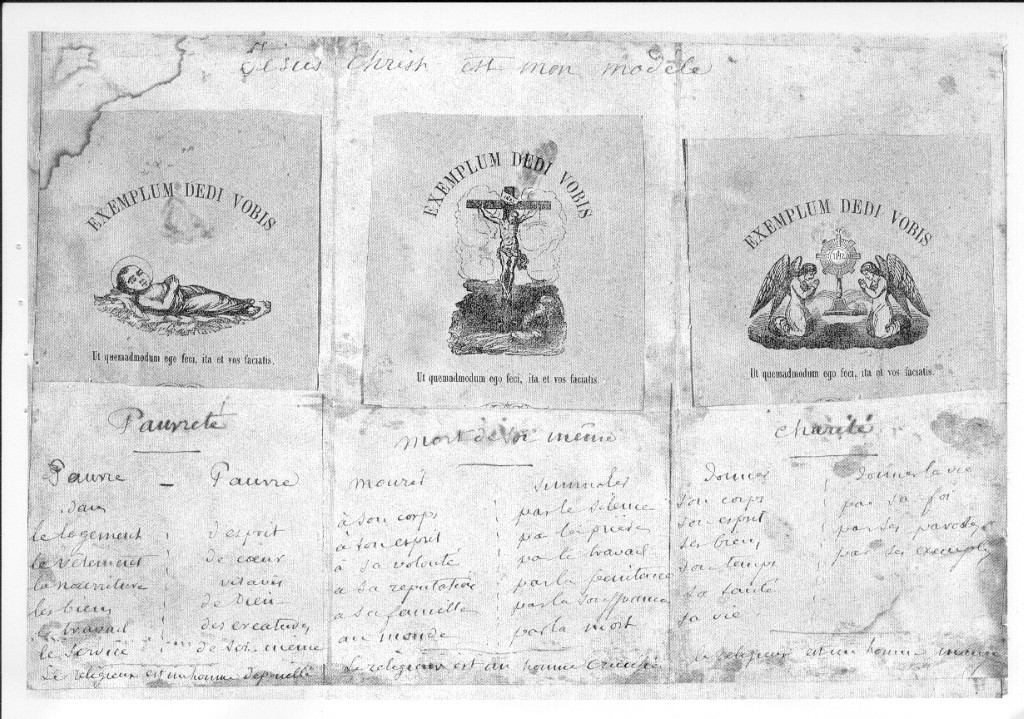 Jesus Christ est mon modèle
EXEMPLUM DEDI VOBIS
Ut quemadmodum ego feci, ita et vos faciatis.
Pauvreté
Pauvre – Pauvre
dans
le logement d'esprit
le vêtement de cœur
la nourriture vis à vis
les biens de Dieu
le travail des creatures
le service de soi-même
Le religieux est un homme depouillé
EXEMPLUM DEDI VOBIS
Ut quemadmodum ego feci, ita et vos faciatis.
mort de soi même
mourir s'immoler
à son corps par le silence
à son esprit par la prière
à sa volonté par le travail
à sa reputation par la penitence
à sa famille par la souffrance
au monde par la mort
Le religieux est un homme Crucifié
EXEMPLUM DEDI VOBIS
Ut quemadmodum ego feci, ita et vos faciatis.
charité
Donner Donner la vie
son corps par sa foi
son esprit par ses paroles
ses biens par ses exemples
son temps
sa santé
sa vie
le religieux est un homme mangé